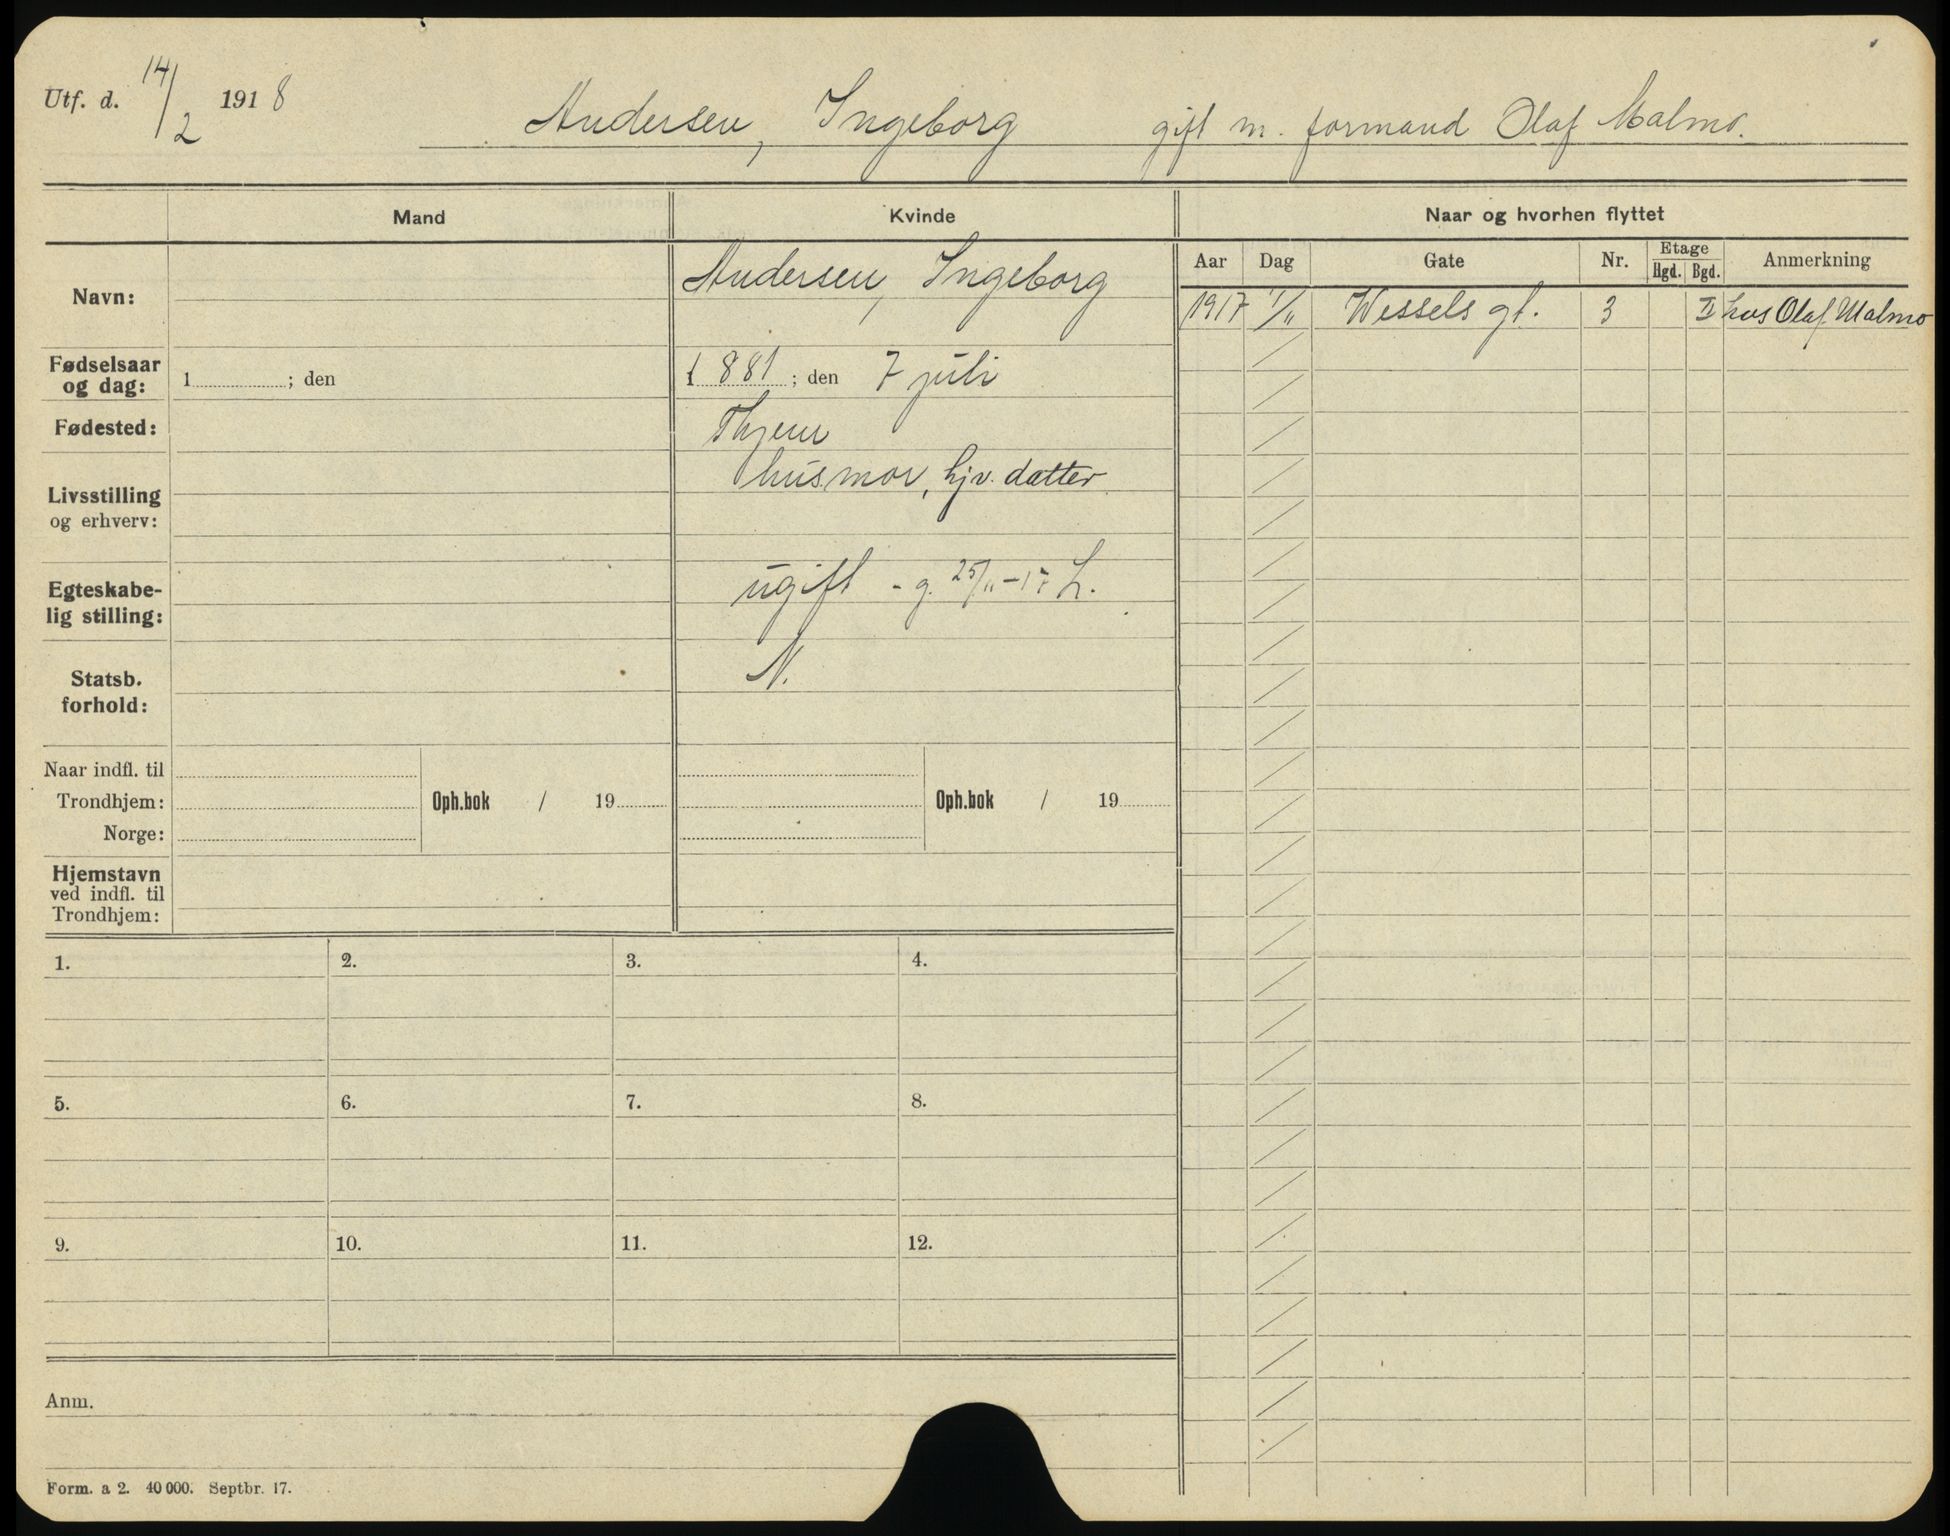 Utf. d. 14/2 1918
Andersen, Ingeborg gift m. formand Olaf Malmo.
Mand Kvinde Naar og hvorhen flyttet
Aar Dag Gate Nr. Etage Hgd. Bgd. Anmerkning
Navn: Andersen, Ingeborg
1917 1/11 Wessels gt. 3 II hos Olaf Malmo
Fødselsaar
og dag: 1 ; den 1881 ; den 7 juli
Fødested: Thjem
husmor, hjv. datter
Livsstilling
og erhverv:
Egteskabe-
lig stilling: ugift - g. 25/11-17 L.
Statsb.
forhold: N.
Naar indfl. til
Trondhjem: Oph.bok / 19 Oph.bok / 19
Norge:
Hjemstavn
ved indfl. til
Trondhjem:
1. 2. 3. 4.
5. 6. 7. 8.
9. 10. 11. 12.
Anm.
Form. a 2. 40 000. Septbr. 17.